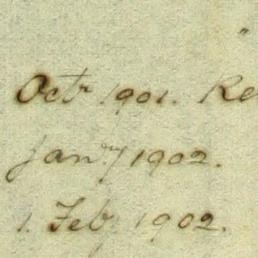 "
Octr 1901. Re
Janry 1902.
1. Feby 1902.